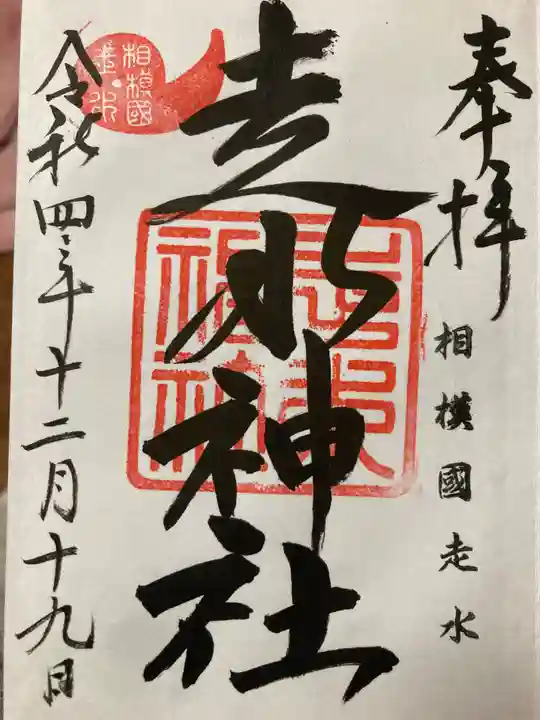 奉拝
相模國走水
走水神社
走水神社
相模國
走水
令和四年十二月十九日